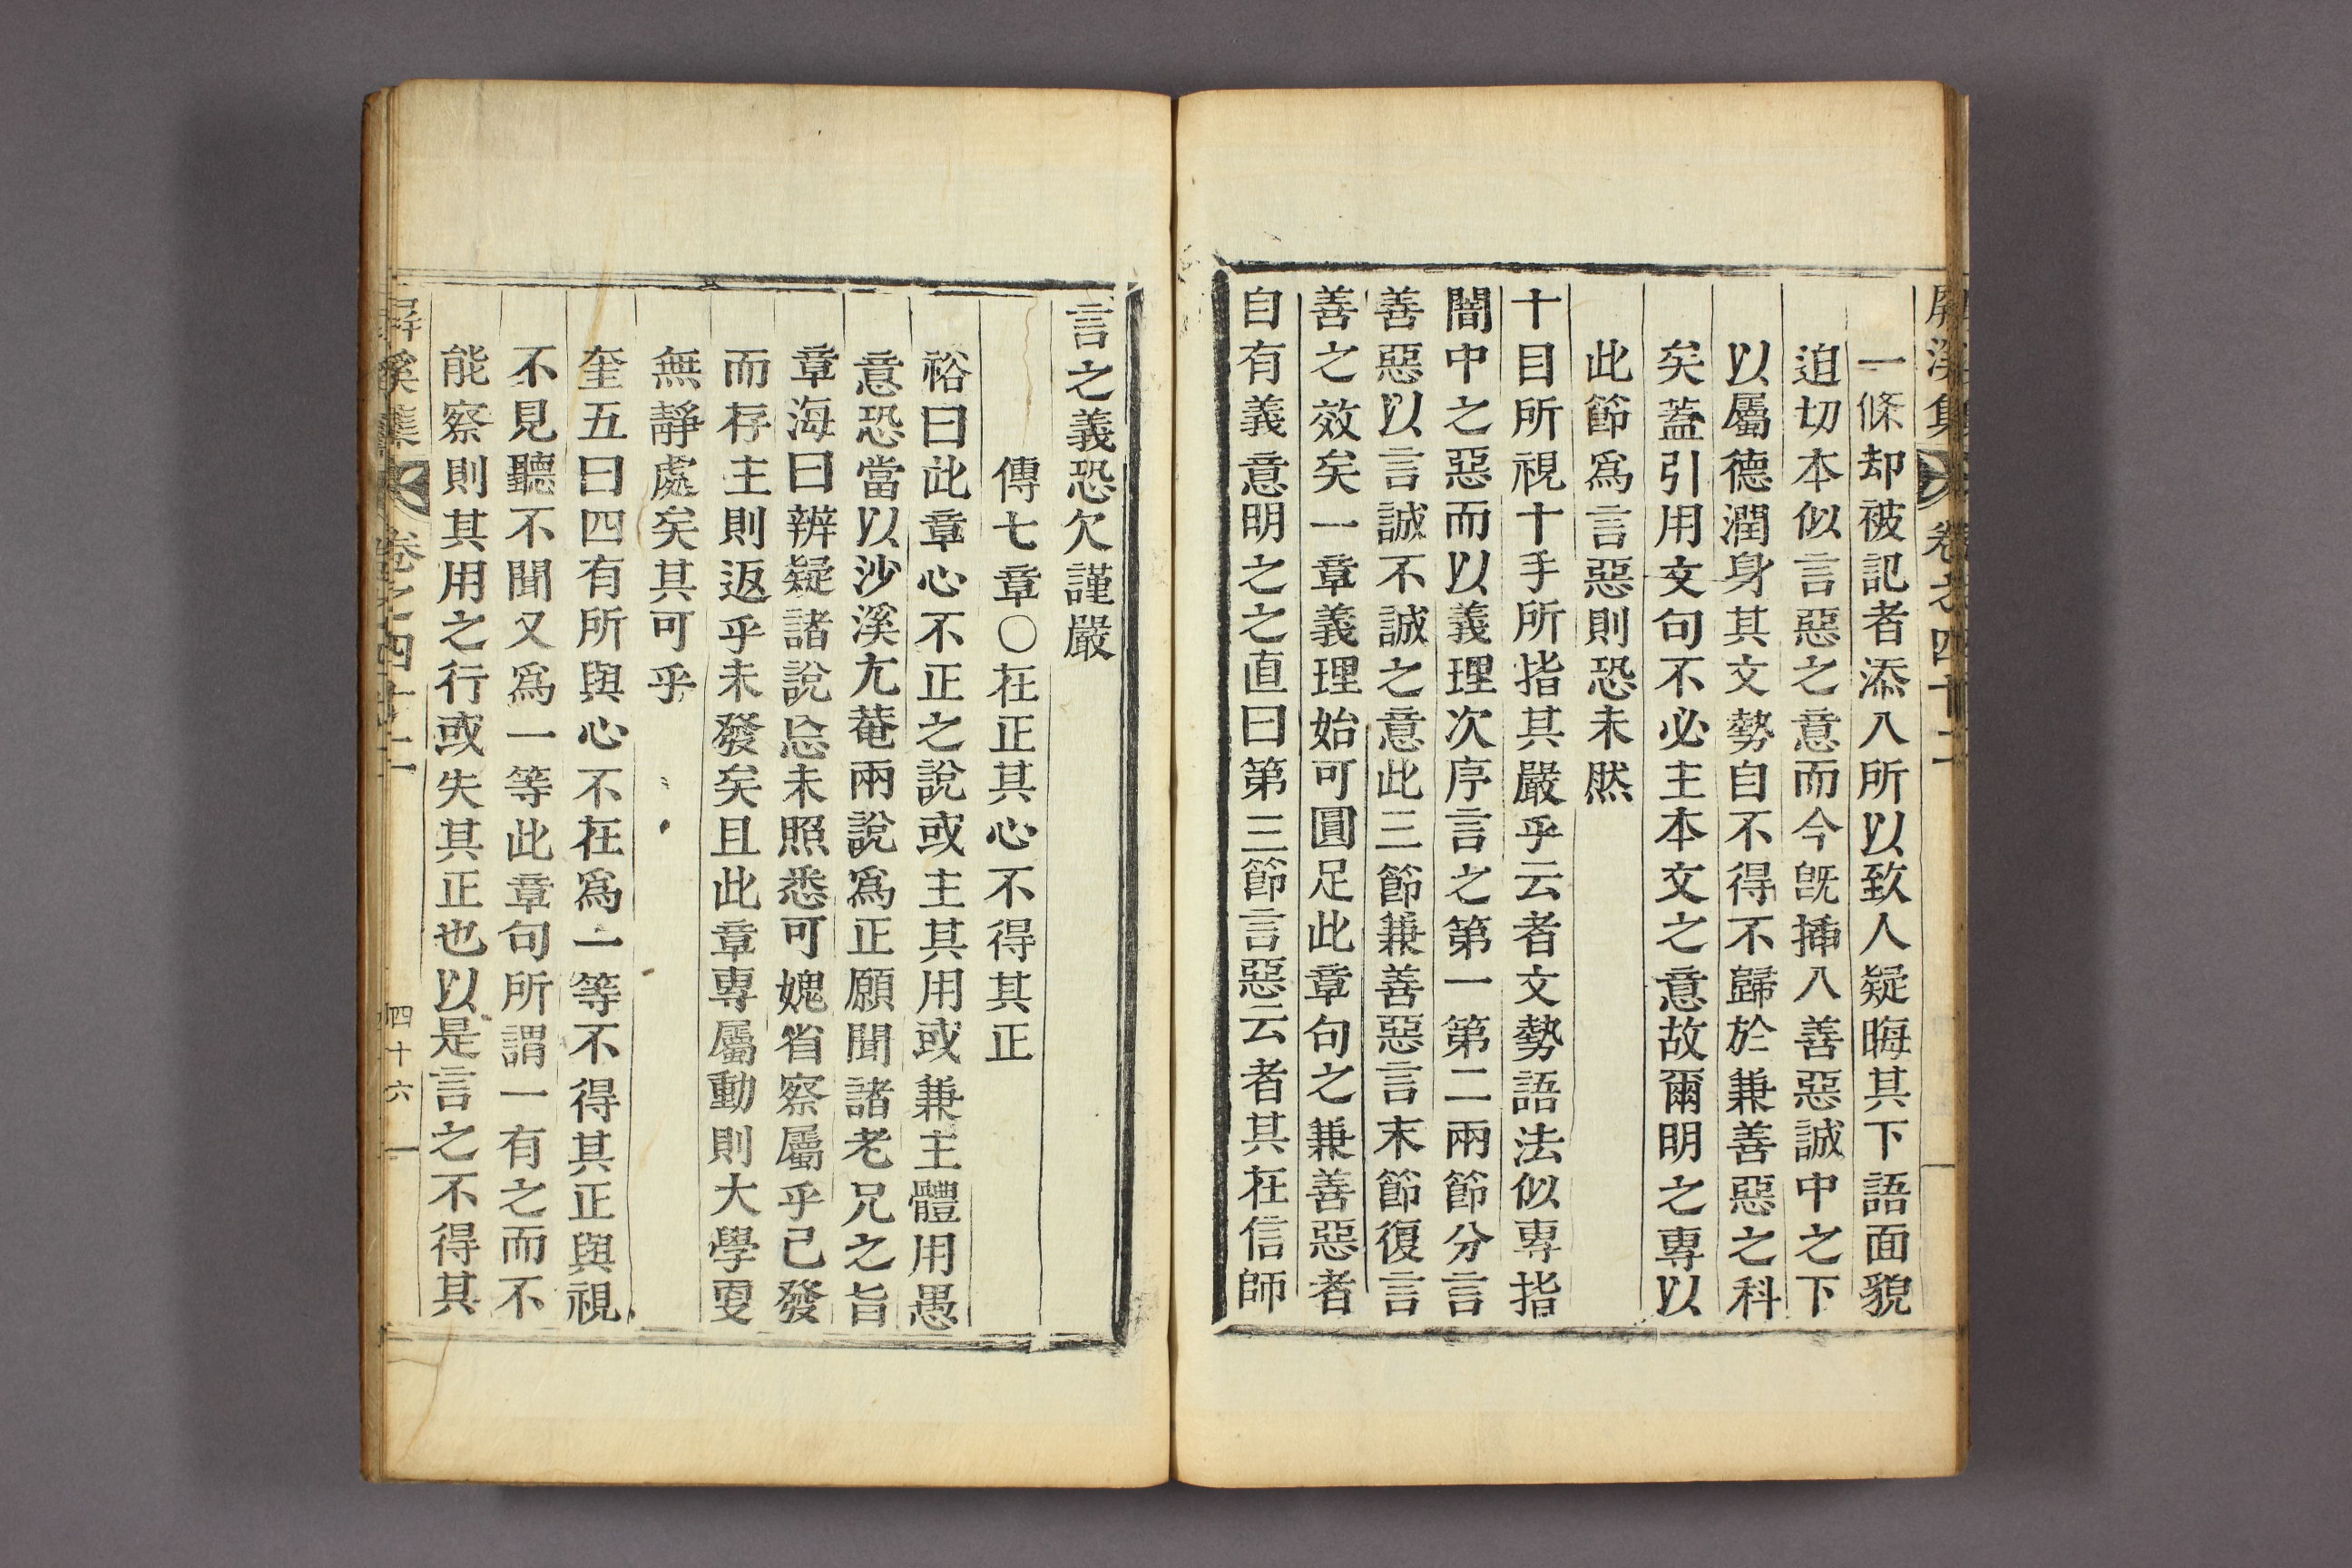 屛溪集 卷之四十二
一條却被記者添入所以致人疑晦其下語面貌
迫切本似言惡之意而今旣揷入善惡誠中之下
以屬德潤身其文勢自不得不歸於兼善惡之科
矣蓋引用文句不必主本文之意故爾明之專以
此節爲言惡則恐未然
十目所視十手所指其嚴乎云者文勢語法似專指
闇中之惡而以義理次序言之第一第二兩節分言
善惡以言誠不誠之意此三節兼善惡言末節復言
善之效矣一章義理始可圓足此章句之兼善惡者
自有義意明之之直曰第三節言惡云者其在信師
言之義恐欠謹嚴
傳七章○在正其心不得其正
裕曰此章心不正之說或主其用或兼主體用愚
意恐當以沙溪尤菴兩說爲正願聞諸老兄之旨
章海曰辨疑諸說忘未照悉可媿省察屬乎已發
而存主則返乎未發矣且此章專屬動則大學更
無靜處矣其可乎
奎五曰四有所與心不在爲一等不得其正與視
不見聽不聞又爲一等此章句所謂一有之而不
能察則其用之行或失其正也以是言之不得其
屛溪集 卷之四十二 四十六